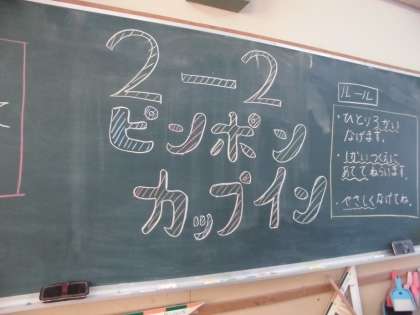 2-2
ピンポン
カップイン
ルール
・ひとり3かい
なげます。
・1かいつくえに
あててねらいます。
・やさしくなげてね。